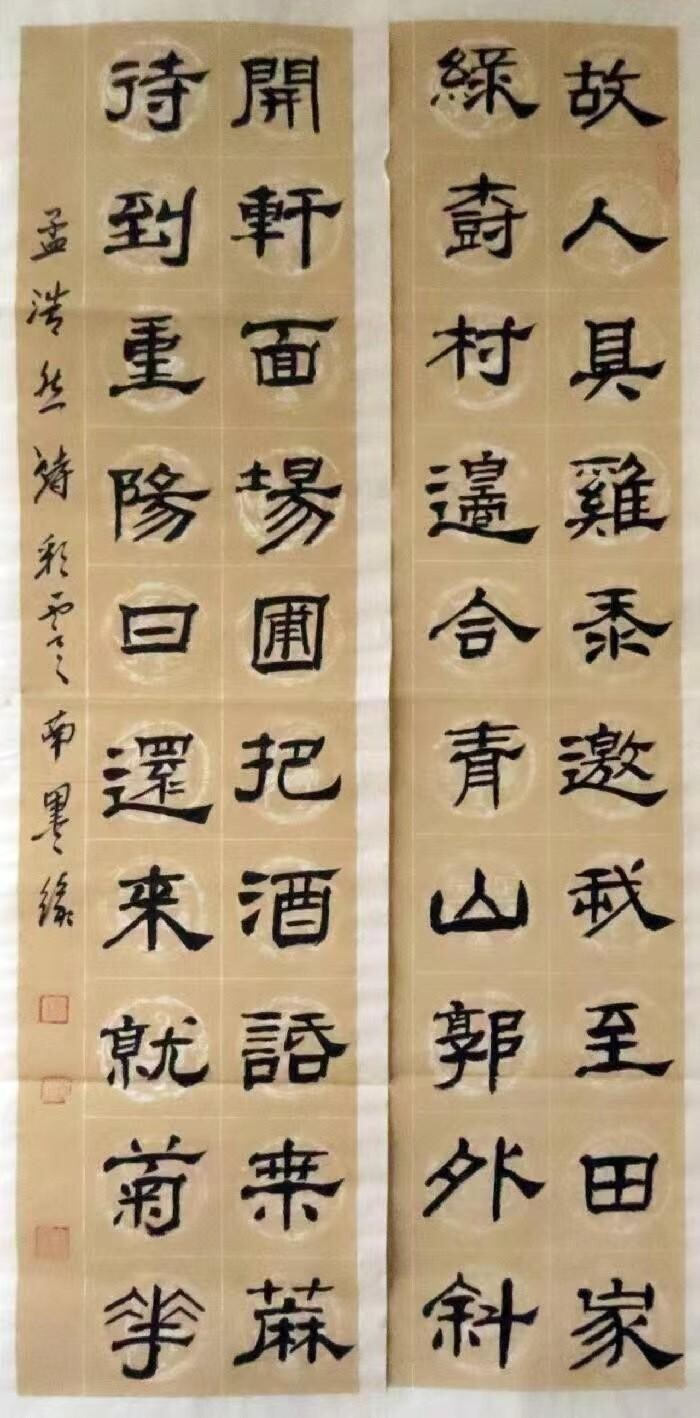 故人具雞黍邀我至田家
綠樹村邊合青山郭外斜
開軒面場圃把酒話桑麻
待到重陽日還来就菊華
孟浩然詩彩雲南墨緣